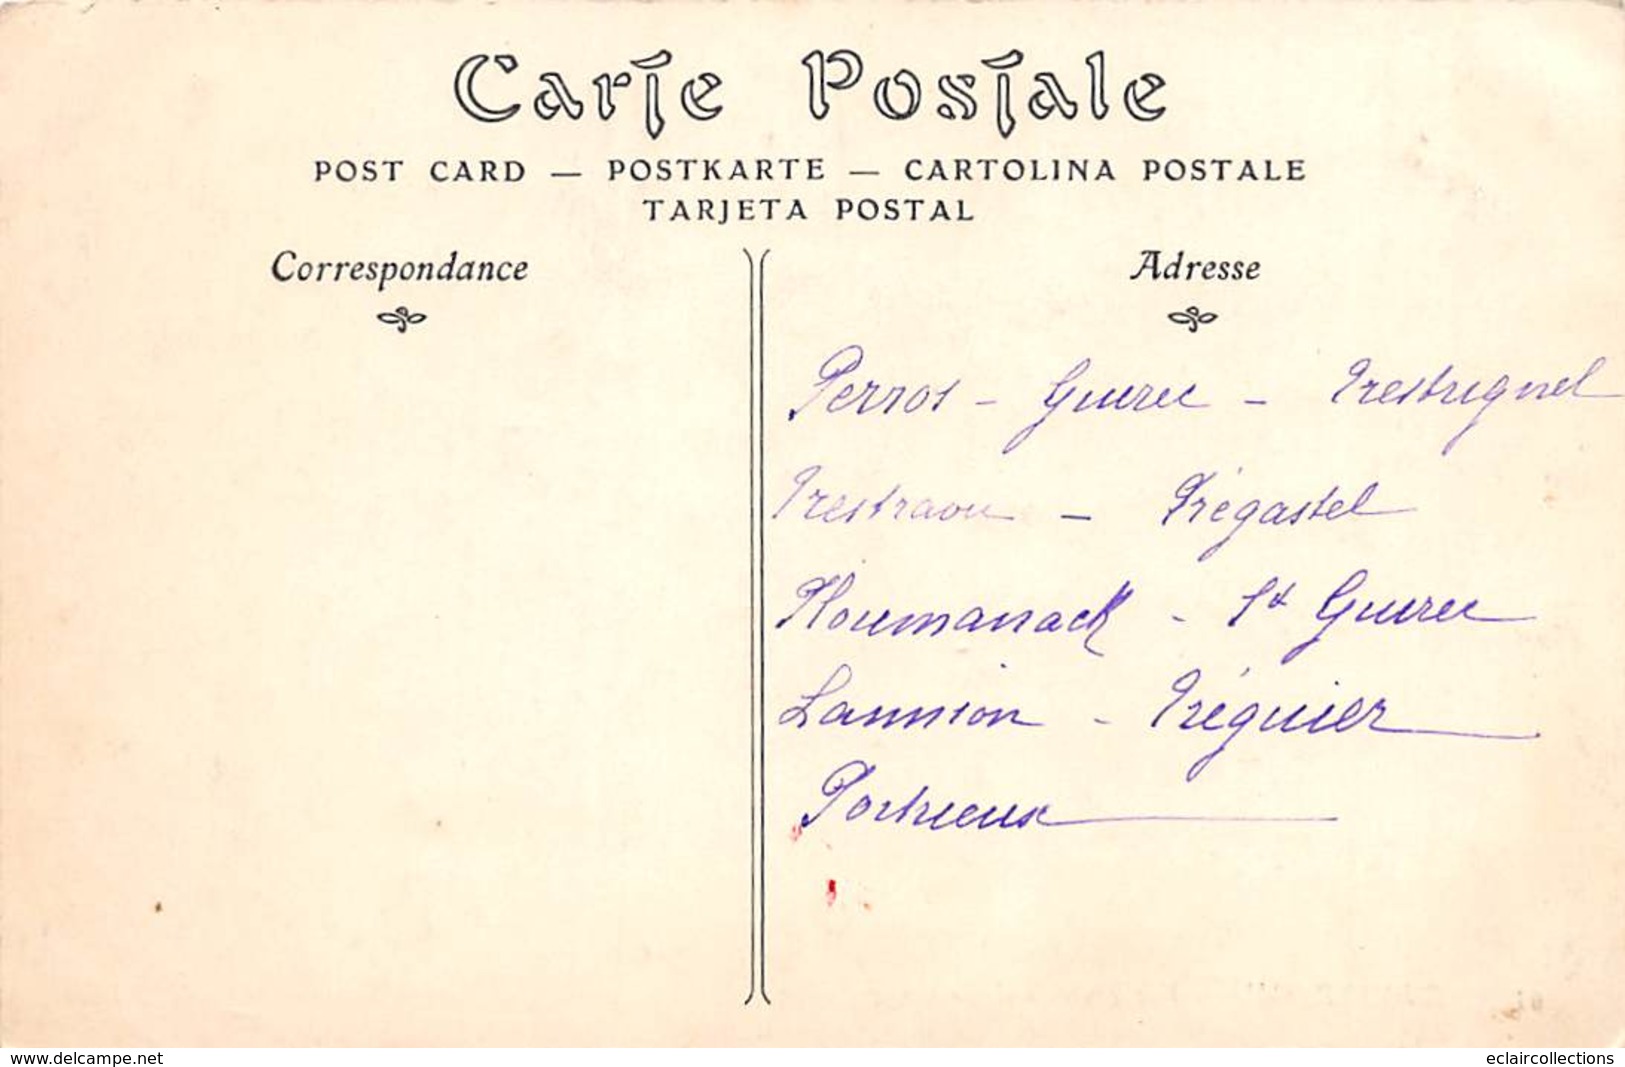 Carte Postale
POST CARD — POSTKARTE — CARTOLINA POSTALE
TARJETA POSTAL
Correspondance
Adresse
Perros - Guerec - Trestrignel
Trestraou - Trégastel
Ploumanack - St Guerec
Lannion - Tréguier
Portrieux
www.delcampe.net
eclaircollections